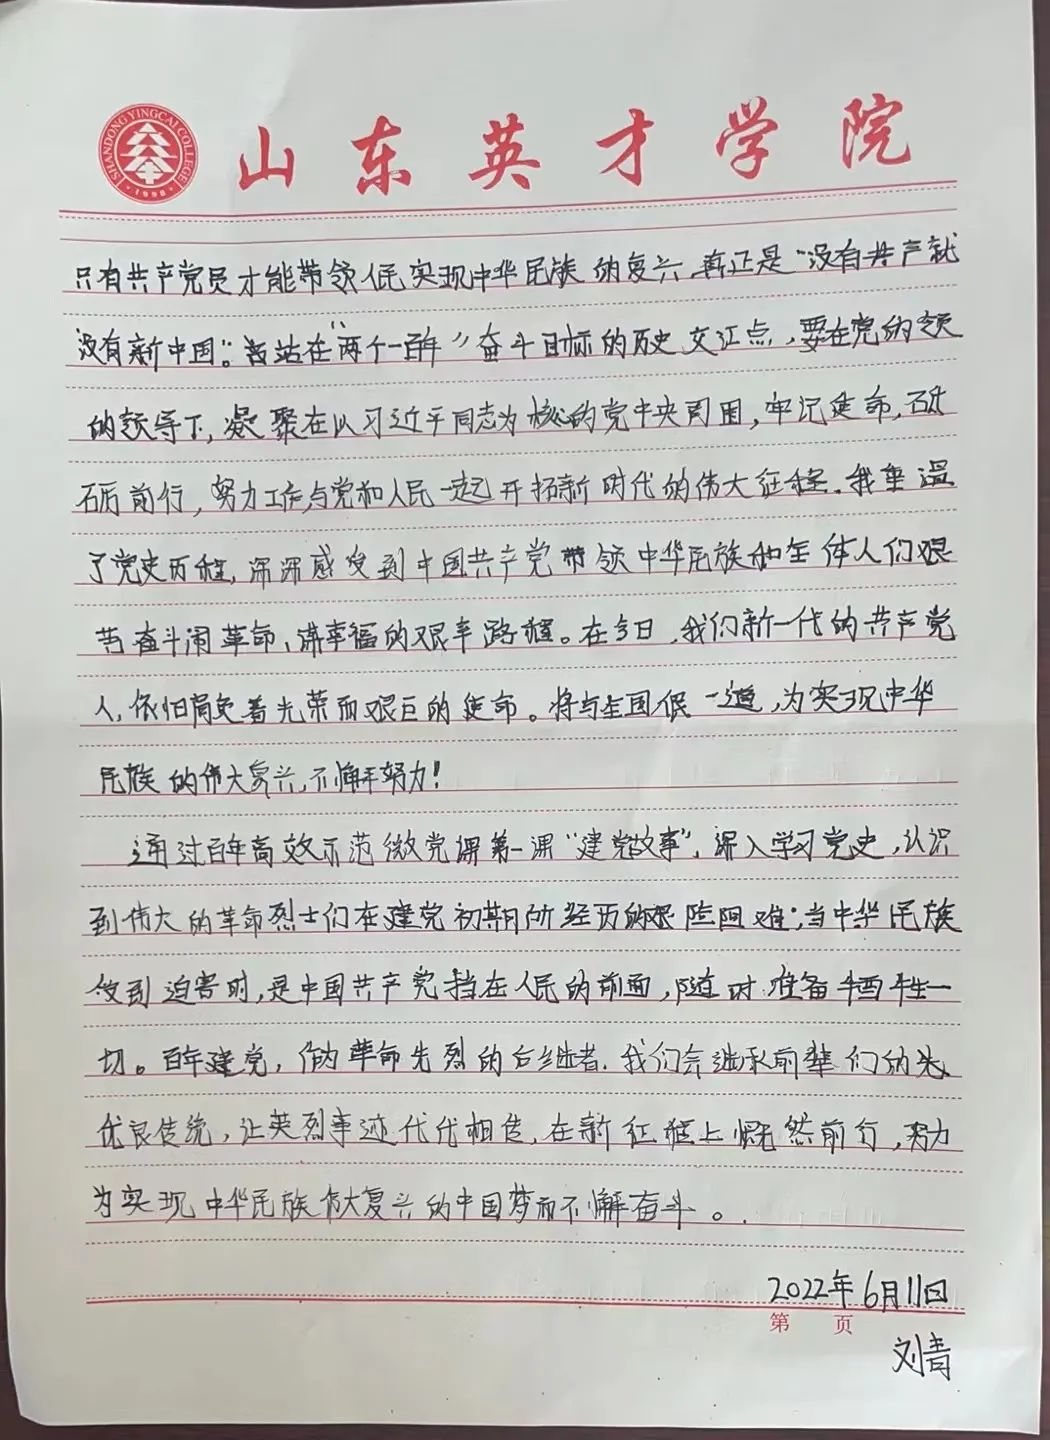 SHANDONG YINGCAI COLLEGE
1998
山东英才学院
只有共产党员才能带领人民实现中华民族的复兴,真正是“没有共产就
没有新中国”。站在“两个一百年”奋斗目标的历史交汇点,要在党的领
的领导下,凝聚在以习近平同志为核心的党中央周围,牢记使命,砥
砺前行,努力工作,与党和人民一起开拓新时代的伟大征程。我重温
了党史历程,深深感受到中国共产党带领中华民族和全体人们艰
苦奋斗闹革命、谋幸福的艰辛路程。在今日,我们新一代的共产党
人,依旧肩负着光荣而艰巨的使命。将与全国人民一道,为实现中华
民族的伟大复兴,不懈努力!
通过百年高效示范微党课第一课“建党故事”,深入学习党史,认识
到伟大的革命烈士们在建党初期所经历的艰险阻难;当中华民族
收到迫害时,是中国共产党挡在人民的前面,随时准备牺牲一
切。百年建党,作为革命先烈的后继者.我们会继承前辈们的
优良传统,让英烈事迹代代相传,在新征程上慨然前行,努力
为实现中华民族伟大复兴的中国梦而不懈奋斗。.
2022年6月11日
第 页
刘青